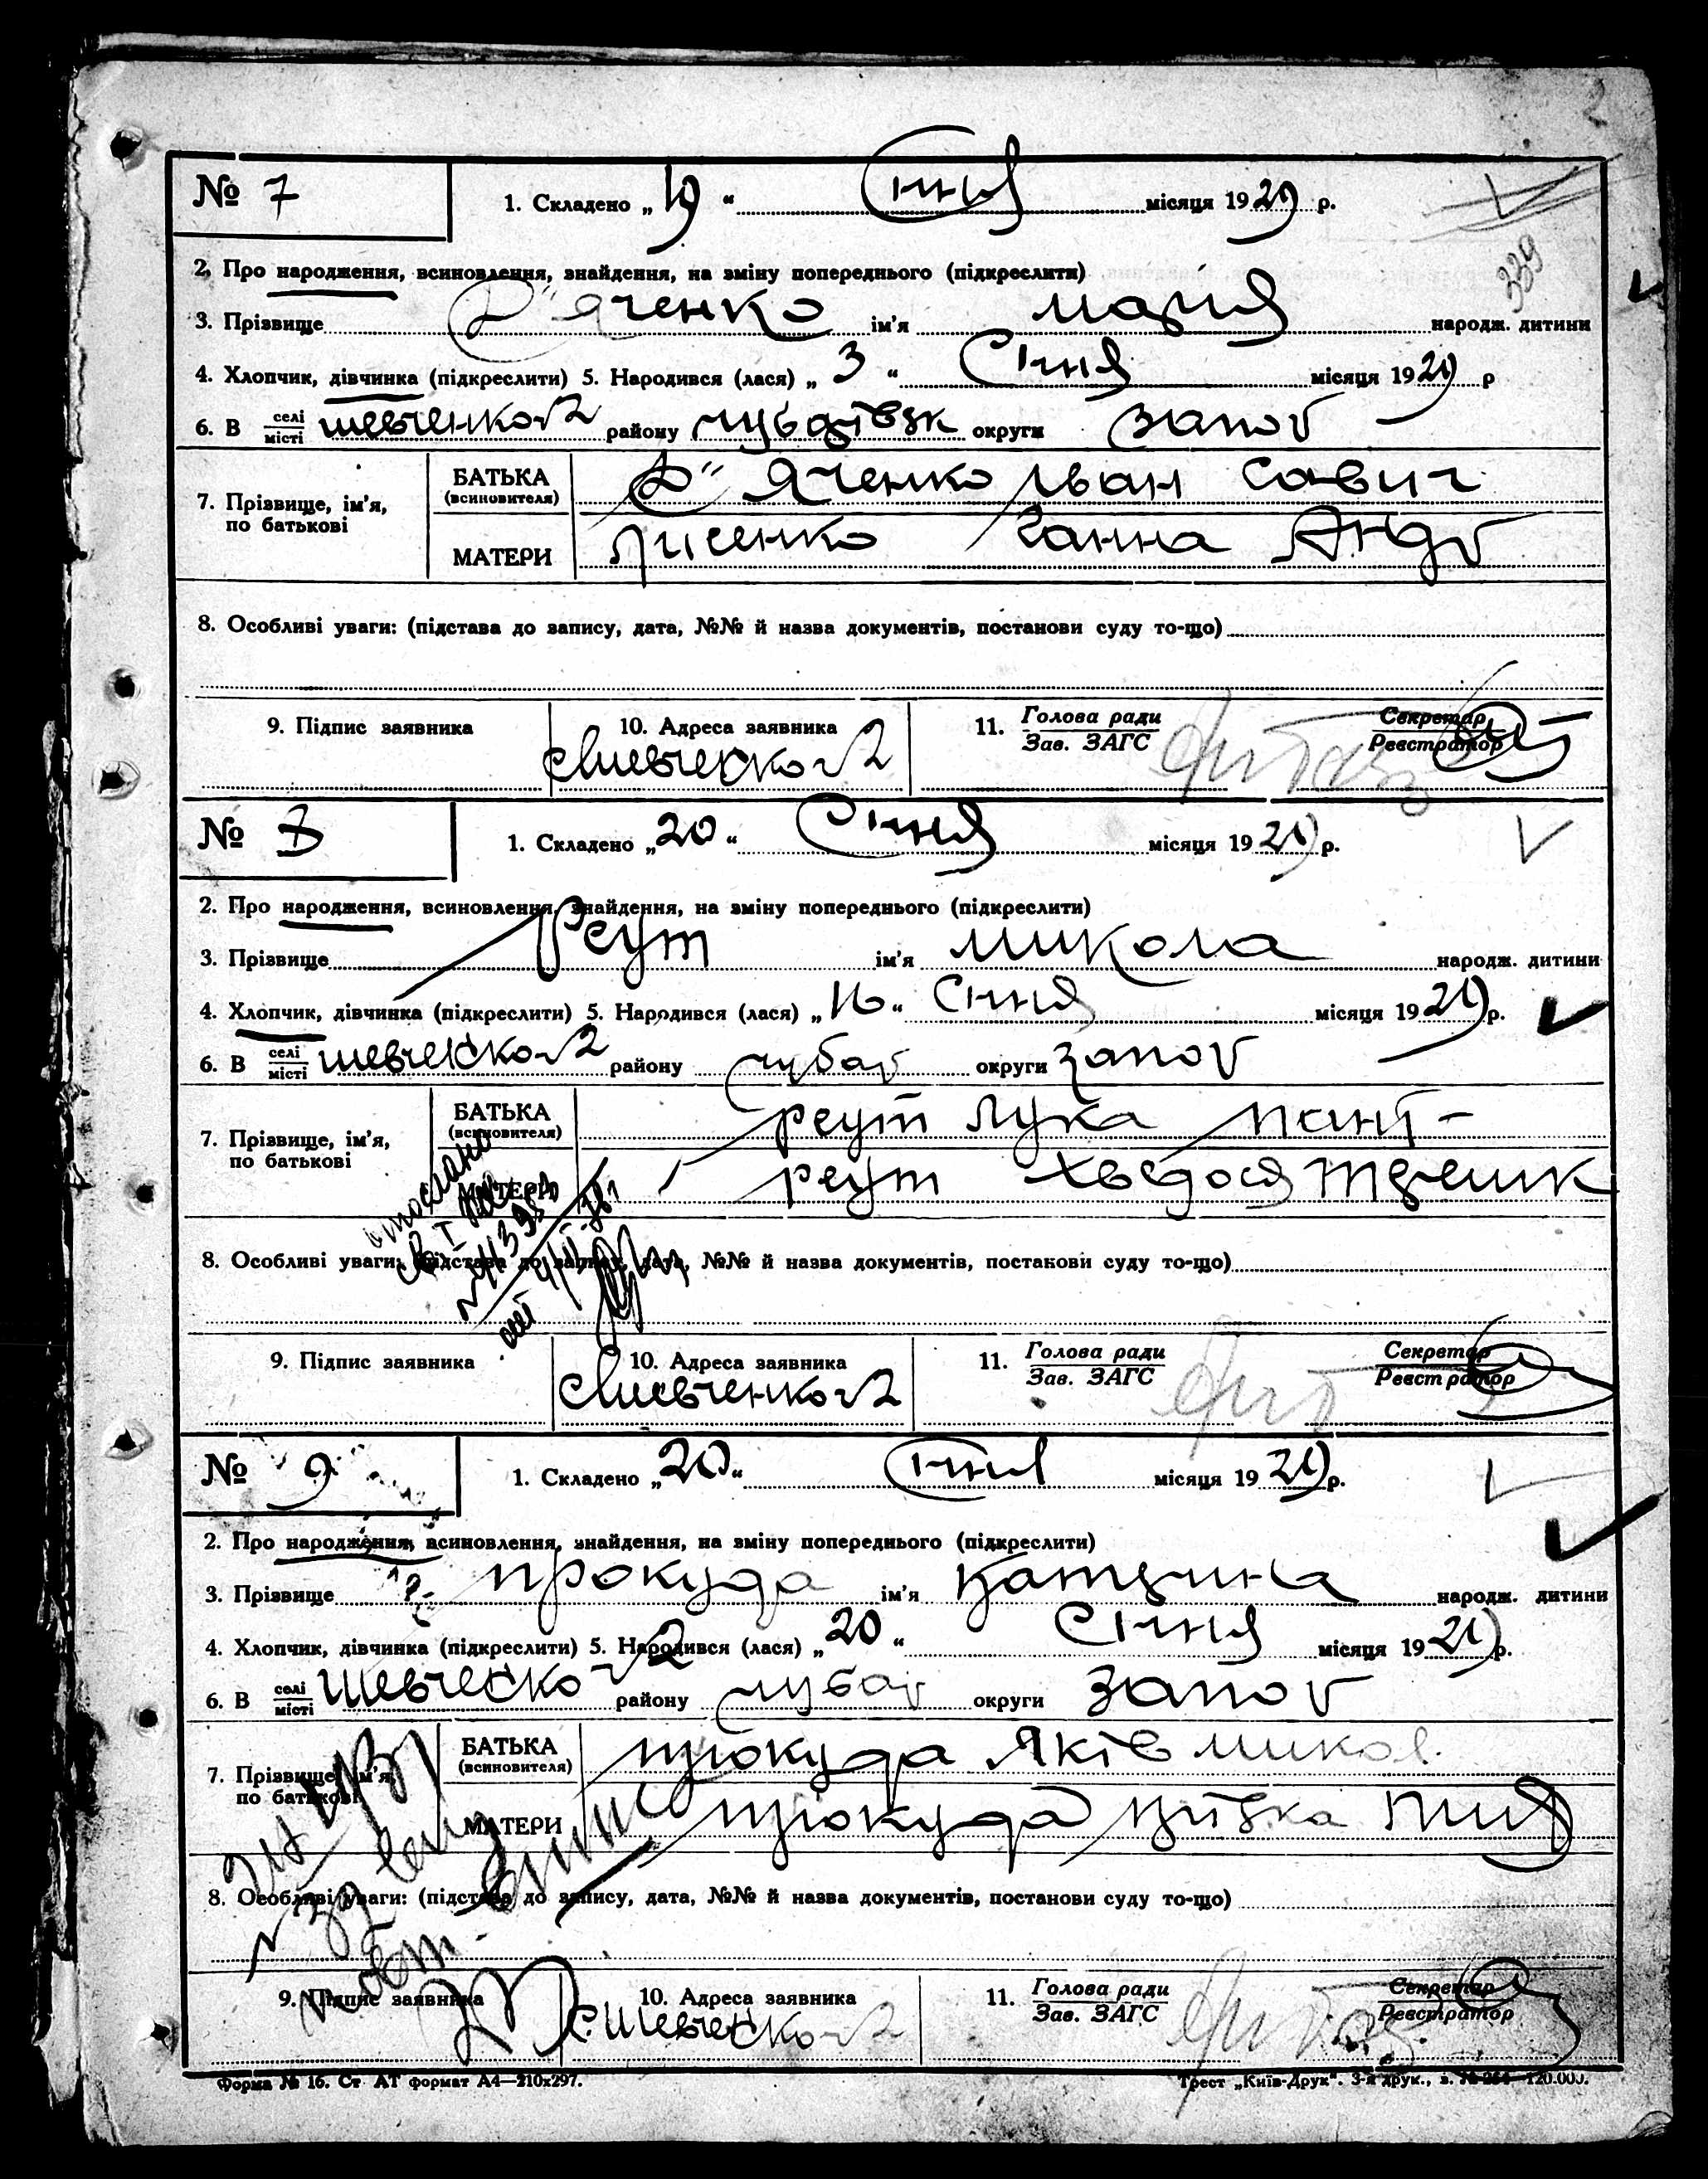 № 7 1. Складено „19“ січня місяця 1929 р.
339
2. Про народження, всиновлення, знайдення, на зміну попереднього (підкреслити)
3. Прізвище Д"яченко ім'я Марія народж. дитини
4. Хлопчик, дівчинка (підкреслити) 5. Народився (лася) „3“ Січня місяця 1929 р
6. В селі/місті Шевченко №2 району округи Запов
7. Прізвище, ім'я, по батькові
БАТЬКА (всиновителя) Д"яченко Іван Савич
МАТЕРИ Лисенко Ганна Анд
8. Особливі уваги: (підстава до запису, дата, №№ й назва документів, постанови суду то-що)
9. Підпис заявника 10. Адреса заявника 11. Голова ради/Зав. ЗАГС Секретар/Реєстратор
с Шевченко №2
№ 8 1. Складено „20“ Січня місяця 1929 р.
2. Про народження, всиновлення, знайдення, на зміну попереднього (підкреслити)
3. Прізвище Реут ім'я Микола народж. дитини
4. Хлопчик, дівчинка (підкреслити) 5. Народився (лася) „16“ Січня місяця 1929 р.
6. В селі/місті Шевченко №2 району Чубар округи Запов
7. Прізвище, ім'я, по батькові
БАТЬКА (всиновителя) Реут Лука Пант-
МАТЕРИ Реут Хведося
8. Особливі уваги: (підстава до запису, дата, №№ й назва документів, постанови суду то-що)
9. Підпис заявника 10. Адреса заявника 11. Голова ради/Зав. ЗАГС Секретар/Реєстратор
с Шевченко №2
№ 9 1. Складено „20“ січня місяця 1929 р.
2. Про народження, всиновлення, знайдення, на зміну попереднього (підкреслити)
3. Прізвище Прокуда ім'я Катерина народж. дитини
4. Хлопчик, дівчинка (підкреслити) 5. Народився (лася) „20“ Січня місяця 1929 р.
6. В селі/місті Шевченко №2 району Чубар округи Запов
7. Прізвище, ім'я, по батькові
БАТЬКА (всиновителя) Прокуда Яків Микол.
МАТЕРИ Прокуда
8. Особливі уваги: (підстава до запису, дата, №№ й назва документів, постанови суду то-що)
9. Підпис заявника 10. Адреса заявника 11. Голова ради/Зав. ЗАГС Секретар/Реєстратор
с. Шевченко №2
Форма № 16. Ст. АТ формат А4—210х297. Трест „Київ-Друк“. 3-я друк., з. № 264—120.000.